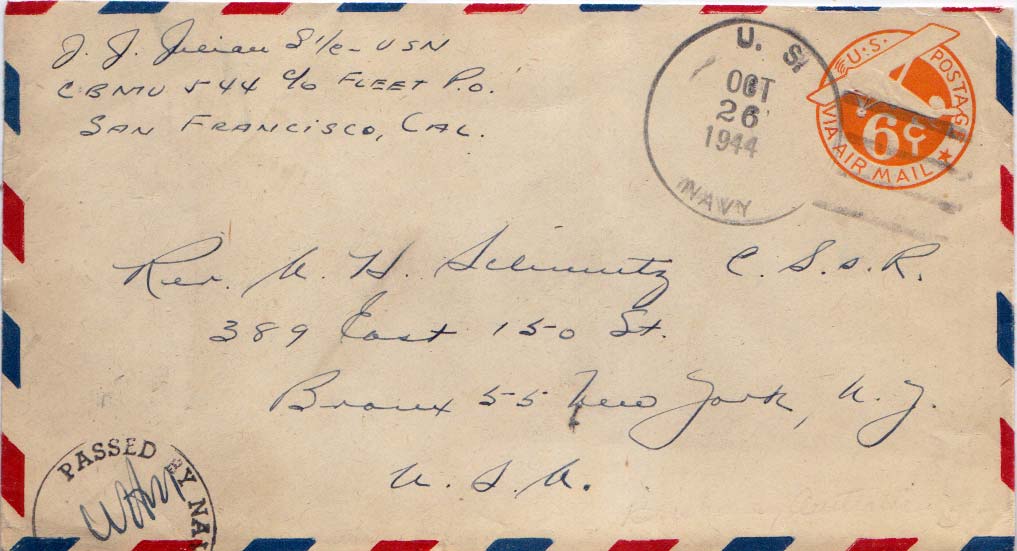 J. J. Julian S 1/c - USN
CBMU 544 c/o FLEET P.O.
SAN FRANCISCO, CAL.
U. S.
OCT
26
1944
NAVY
U.S. POSTAGE
6¢
VIA AIR MAIL
Rev. A. H. Schmitz C.S.s.R.
389 East 150 St.
Bronx 55 New York, N.Y.
U.S.A.
PASSED BY NAV